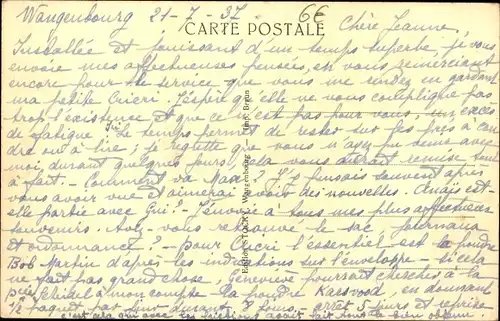 Wangenbourg 21-7-37 6€
CARTE POSTALE
Chère Jeanne,
Installée et jouissant d'un temps superbe, je vous
envoie mes affectueuses pensées, en vous remerciant
encore pour le service que vous me rendez en gardant
ma petite Cricri. J'espère qu'elle ne vous complique pas
trop l'existence et que ce n'est pas pour vous, un excès
de fatigue. Ici le temps permet de rester sur les prés à cou
dre ou à lire; je regrette que vous n'ayez pu venir avec
moi, durant quelques jours, cela vous aurait remise tout
à fait. - Comment va ? J'y pensais souvent après
vous avoir vue et aimerai avoir des nouvelles. Anaïs est-
elle partie avec Gui? - J'envoie à tous mes plus affectueux
souvenirs. Avez-vous retrouvé le sac, journaux
et ordonnance? - pour Cricri l'essentiel est la poudre
Bob Martin d'après les indications sur l'enveloppe - si cela
ne fait pas grand chose, Geneviève pourrait chercher à la
à mon compte la poudre en donnant
1/2 paquet par jour durant 8 jours, arrêt 5 jours et reprise
c'est cela qui avec les frictions avait fait tout le bien obtenu.
Edition STOCKY, Wangenbourg